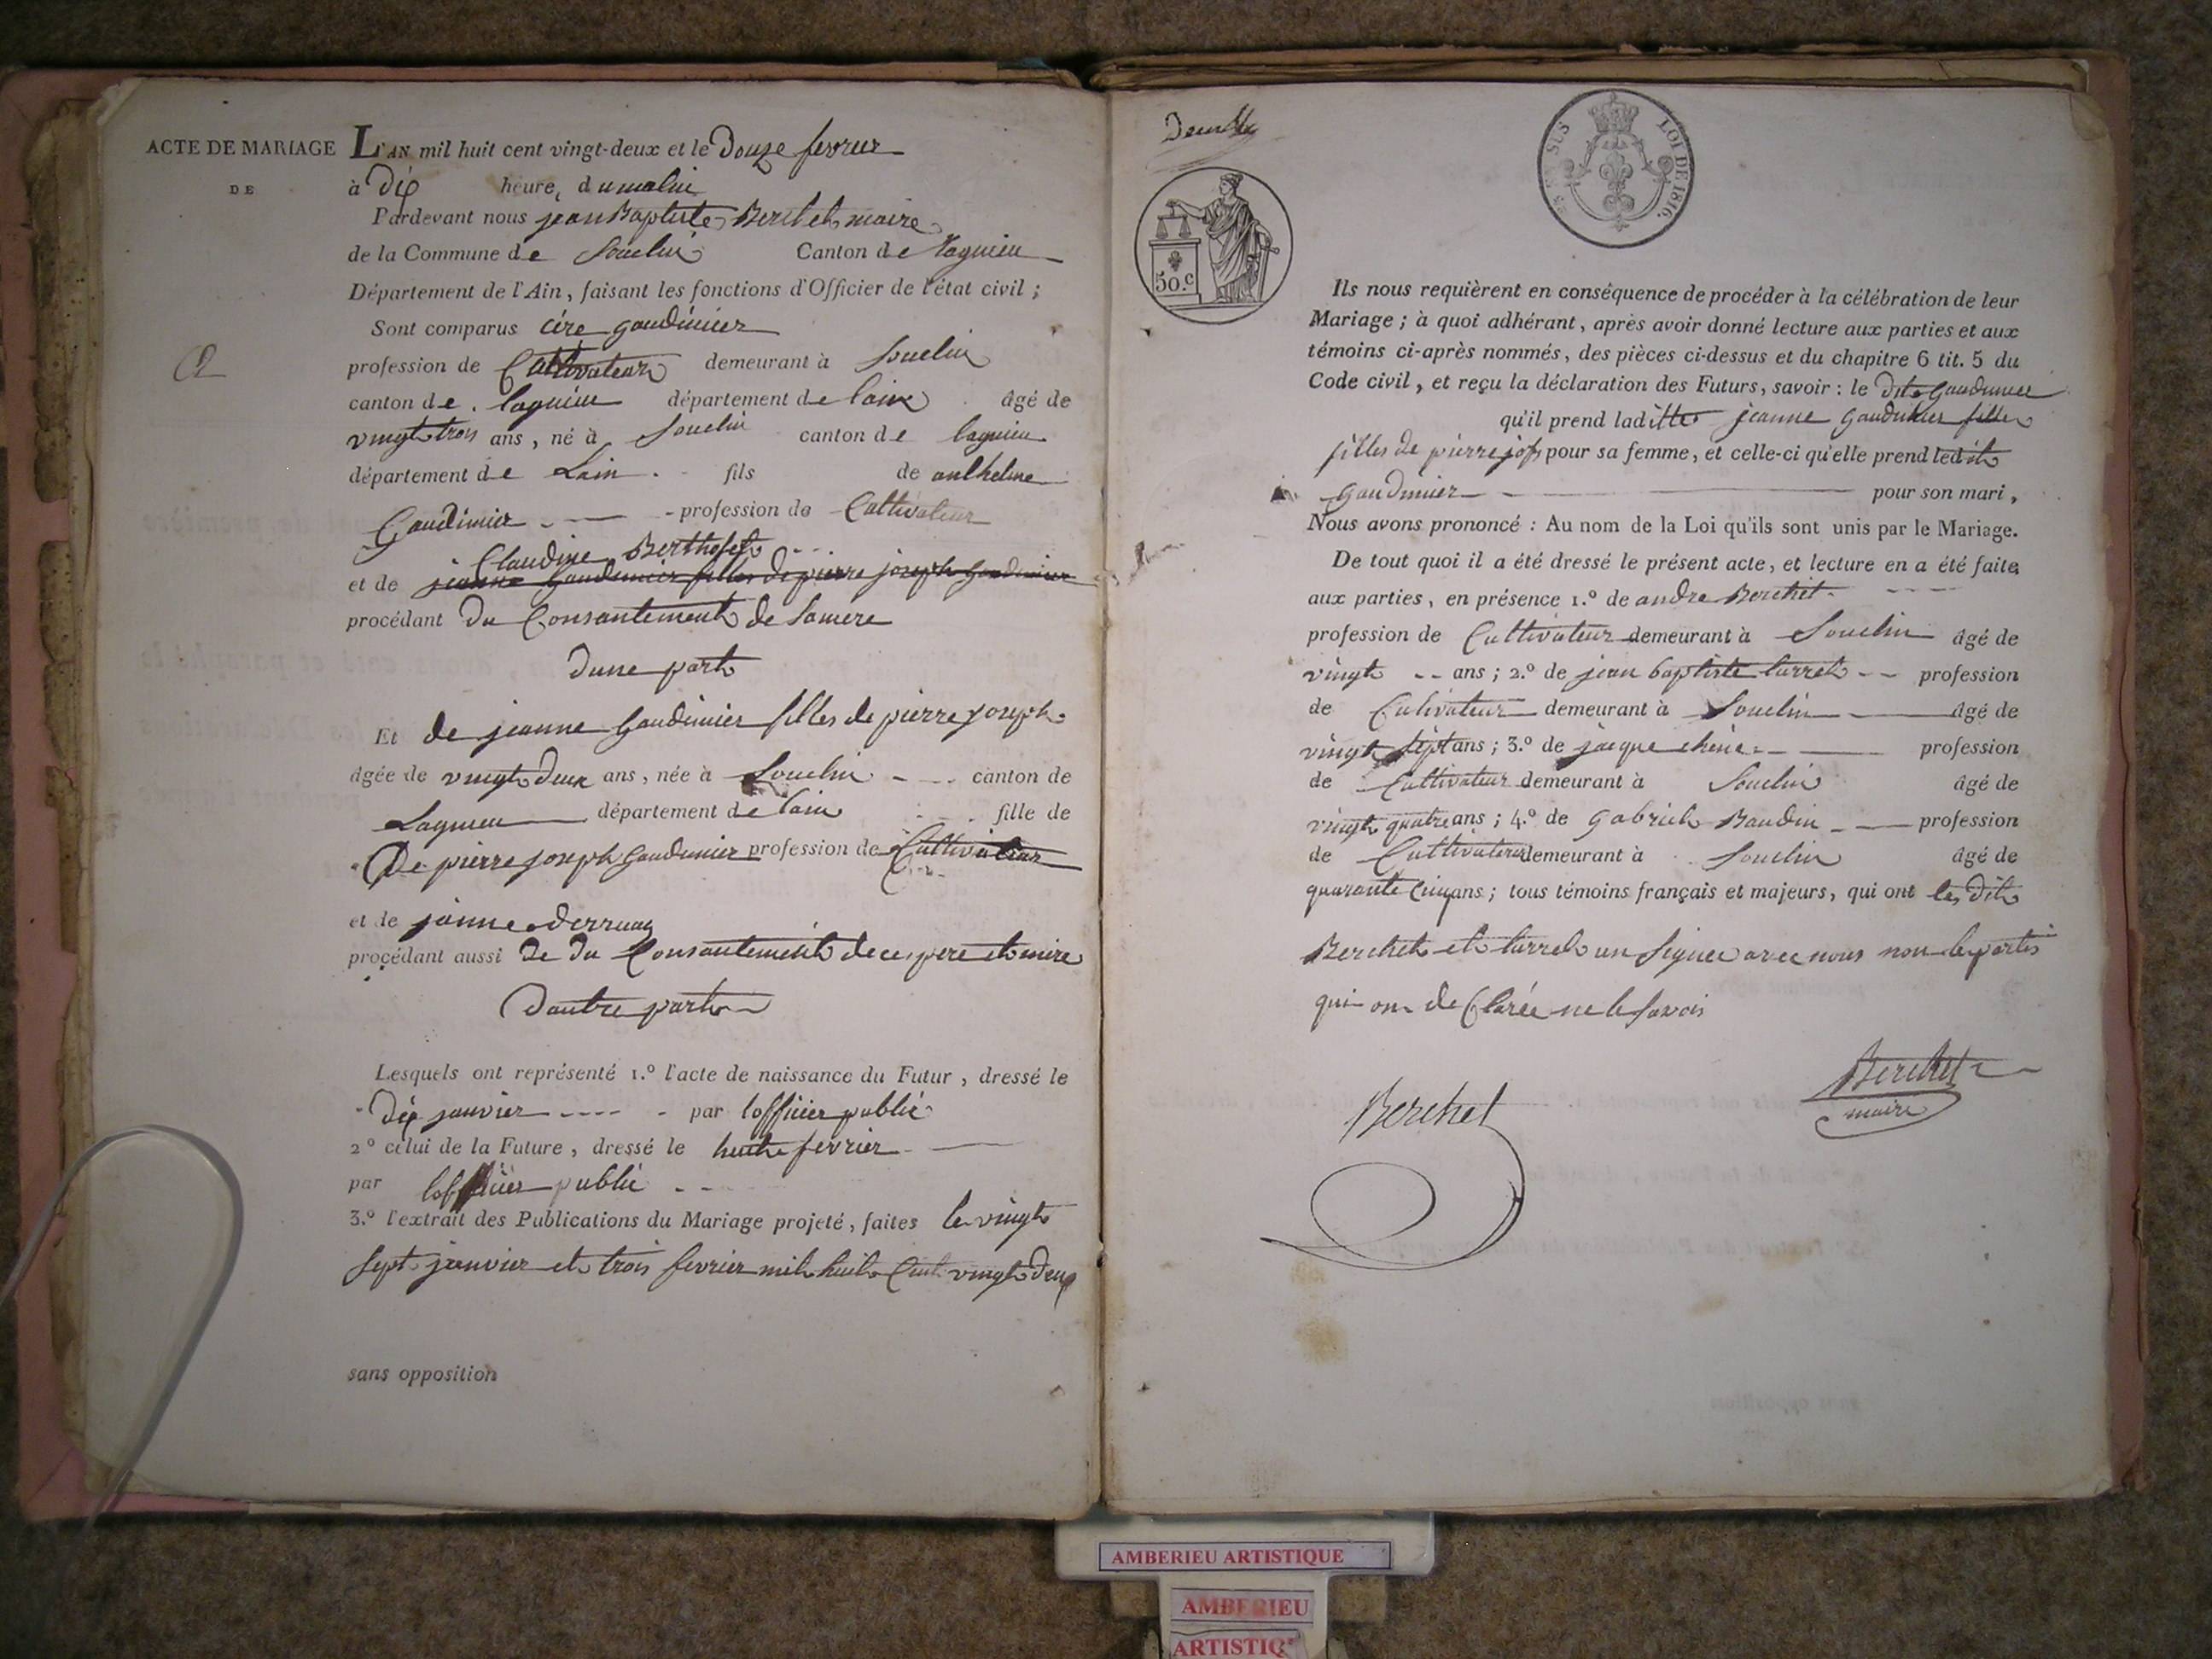 ACTE DE MARIAGE
DE
L'AN mil huit cent vingt-deux et le Douze fevrier
à Dix heure, du matin
Pardevant nous jean Baptiste Berchet maire
de la Commune de Souclin Canton de Lagnieu
Département de l'Ain, faisant les fonctions d'Officier de l'état civil ;
Sont comparus cire gaudinier
profession de Cultivateur demeurant à Souclin
canton de lagnieu département de lain âgé de
vingt trois ans, né à Souclin canton de lagnieu
département de Lain fils de anthelme
Gaudinier profession de Cultivateur
Claudine Bertholet
et de jeanne Gaudinier filles de pierre joseph Gaudinier
procédant du Consantement de Samere
Dune part
Et de jeanne Gaudinier filles de pierre joseph
âgée de vingt Deux ans, née à Souclin canton de
Lagnieu département de lain fille de
De pierre joseph Gaudinier profession de Cultivateur
et de jànne
procédant aussi De Du Consantement de ces pere et mere
Dautre part
Lesquels ont représenté 1.º l'acte de naissance du Futur, dressé le
Dix janvier par lofficier public
2º celui de la Future, dressé le huit fevrier
par lofficier public
3.º l'extrait des Publications du Mariage projeté, faites le vingt
sept janvier et trois fevrier mil huit Cent vingt Deux
sans opposition
LOI DE 1816.
50.c
Ils nous requièrent en conséquence de procéder à la célébration de leur
Mariage ; à quoi adhérant, après avoir donné lecture aux parties et aux
témoins ci-après nommés, des pièces ci-dessus et du chapitre 6 tit. 5 du
Code civil, et reçu la déclaration des Futurs, savoir : le dit Gaudinier
qu'il prend laditte jeanne Gaudinier fille
filles de pierre jops pour sa femme, et celle-ci qu'elle prend ledit
gaudinier pour son mari,
Nous avons prononcé : Au nom de la Loi qu'ils sont unis par le Mariage.
De tout quoi il a été dressé le présent acte, et lecture en a été faite
aux parties, en présence 1.º de andre Berchet
profession de Cultivateur demeurant à Souclin âgé de
vingt ans ; 2.º de jean baptiste larret profession
de Cultivateur demeurant à Souclin âgé de
vingt sept ans ; 3.º de jacque chêne profession
de Cultivateur demeurant à Souclin âgé de
vingt quatre ans ; 4.º de gabriel Baudin profession
de Cultivateur demeurant à Souclin âgé de
quarante Cinq ans ; tous témoins français et majeurs, qui ont les Dit
Berchet et larret un Signer avec nous non les partis
qui on de Clarée ne le savois
Berchet
Berchet
maire
AMBERIEU ARTISTIQUE
AMBERIEU
ARTISTIQ